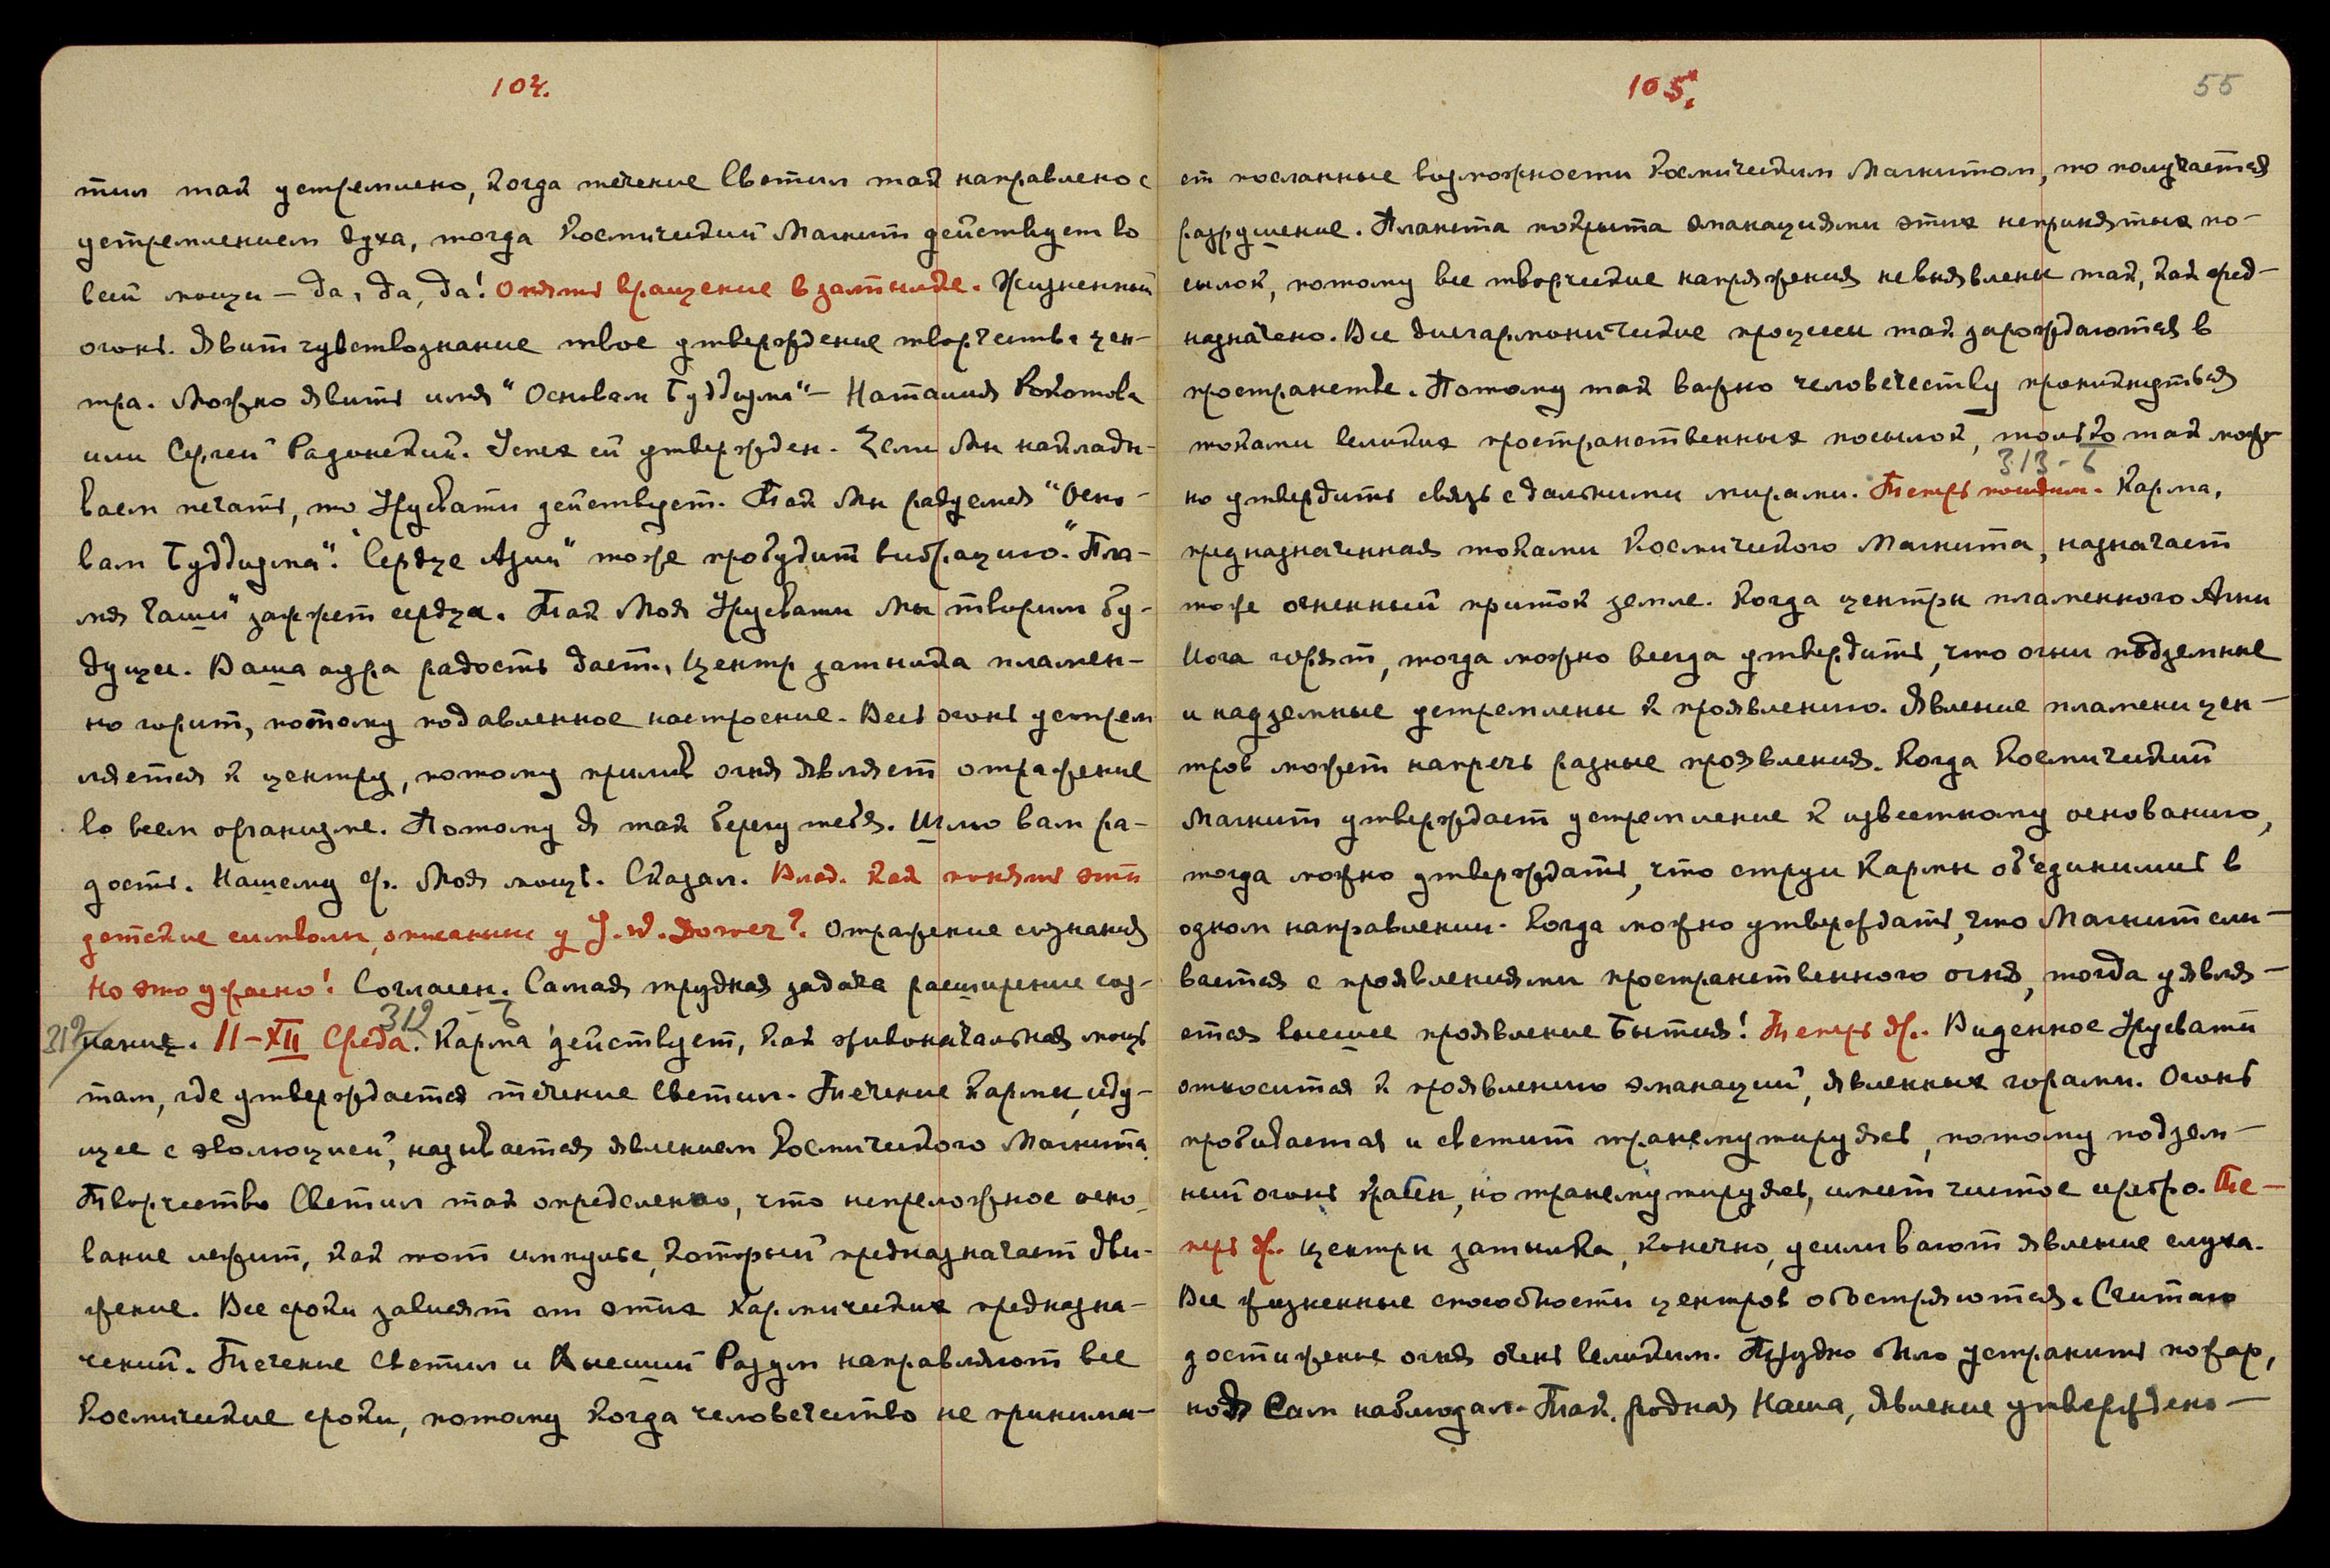 104.
тил так устремлено, когда течение Светил так направлено с
устремлением духа, тогда Космический Магнит действует во
всей мощи — да, да, да! Опять вращение в затылке. Жизненный
огонь. Явит чувствознание твое утверждение творчества цен-
тра. Можно явить имя "Основам Буддизма" — Наталия Рокотова
или Сергей Радонежский. Успех ей утвержден. Если Мы наклады-
ваем печать, то Урусвати действует. Так Мы радуемся "Осно-
вам Буддизма". "Сердце Азии" тоже пробудит вибрацию. "Пла-
мя Чаши" зажжет сердца. Так Моя Урусвати Мы творим бу-
дущее. Ваша аура радость дает, центр затылка пламен-
но горит, потому подавленное настроение. Весь огонь устрем
ляется к центру, потому прилив огня являет отражение
во всем организме. Потому Я так берегу тебя. Шлю вам ра-
дость. Нашему Ф. Моя мощь. Сказал. Влад. как понять эти
детские символы, описанные у J. W. Dower? Отражение сознания
Но это ужасно! Согласен. Самая трудная задача расширение соз-
нания. 11-XII Среда. Карма действует, как живоначальная мощь
312 312 - б
там, где утверждается течение Светил. Течение Кармы, иду-
щее с эволюцией, называется явлением Космического Магнита.
Творчество Светил так определенно, что непреложное осно-
вание лежит, как тот импульс, который предназначает дви-
жение. Все сроки зависят от этих кармических предназна-
чений. Течение Светил и Высший Разум направляют все
Космические сроки, потому когда человечество не принима-
105.
55
ет посланные возможности Космическим Магнитом, то получается
разрушение. Планета покрыта эманациями этих непринятых по-
сылок, потому все творческие напряжения не выявлены так, как пред-
назначено. Все дисгармонические процессы так зарождаются в
пространстве. Потому так важно человечеству проникнуться
токами великих пространственных посылок, только так мож-
313 - б
но утвердить связь с дальними мирами. Теперь пошлем. Карма,
предназначенная токами Космического Магнита, назначает
тоже огненный приток земле. Когда центры пламенного Агни
Йога горят, тогда можно всегда утвердить, что огни подземные
и надземные устремлены к проявлению. Явление пламени цен-
тров может напречь разные проявления. Когда Космический
Магнит утверждает устремление к известному основанию,
тогда можно утверждать, что струи Кармы объединились в
одном направлении. Когда можно утверждать, что Магнит сли-
вается с проявлениями пространственного огня, тогда уявля-
ется высшее проявление Бытия! Теперь др. Виденное Урусвати
относится к проявлению эманаций, явленных горами. Огонь
пробивается и светит трансмутируясь, потому подзем-
ный огонь красен, но трансмутируясь, имеет чистое серебро. Те-
перь др. Центры затылка, конечно, усиливают явление слуха.
Все жизненные способности центров обостряются. Считаю
достижение огня очень великим. Трудно было устранить пожар,
но Я Сам наблюдал. Так, родная Наша, явление утверждено —